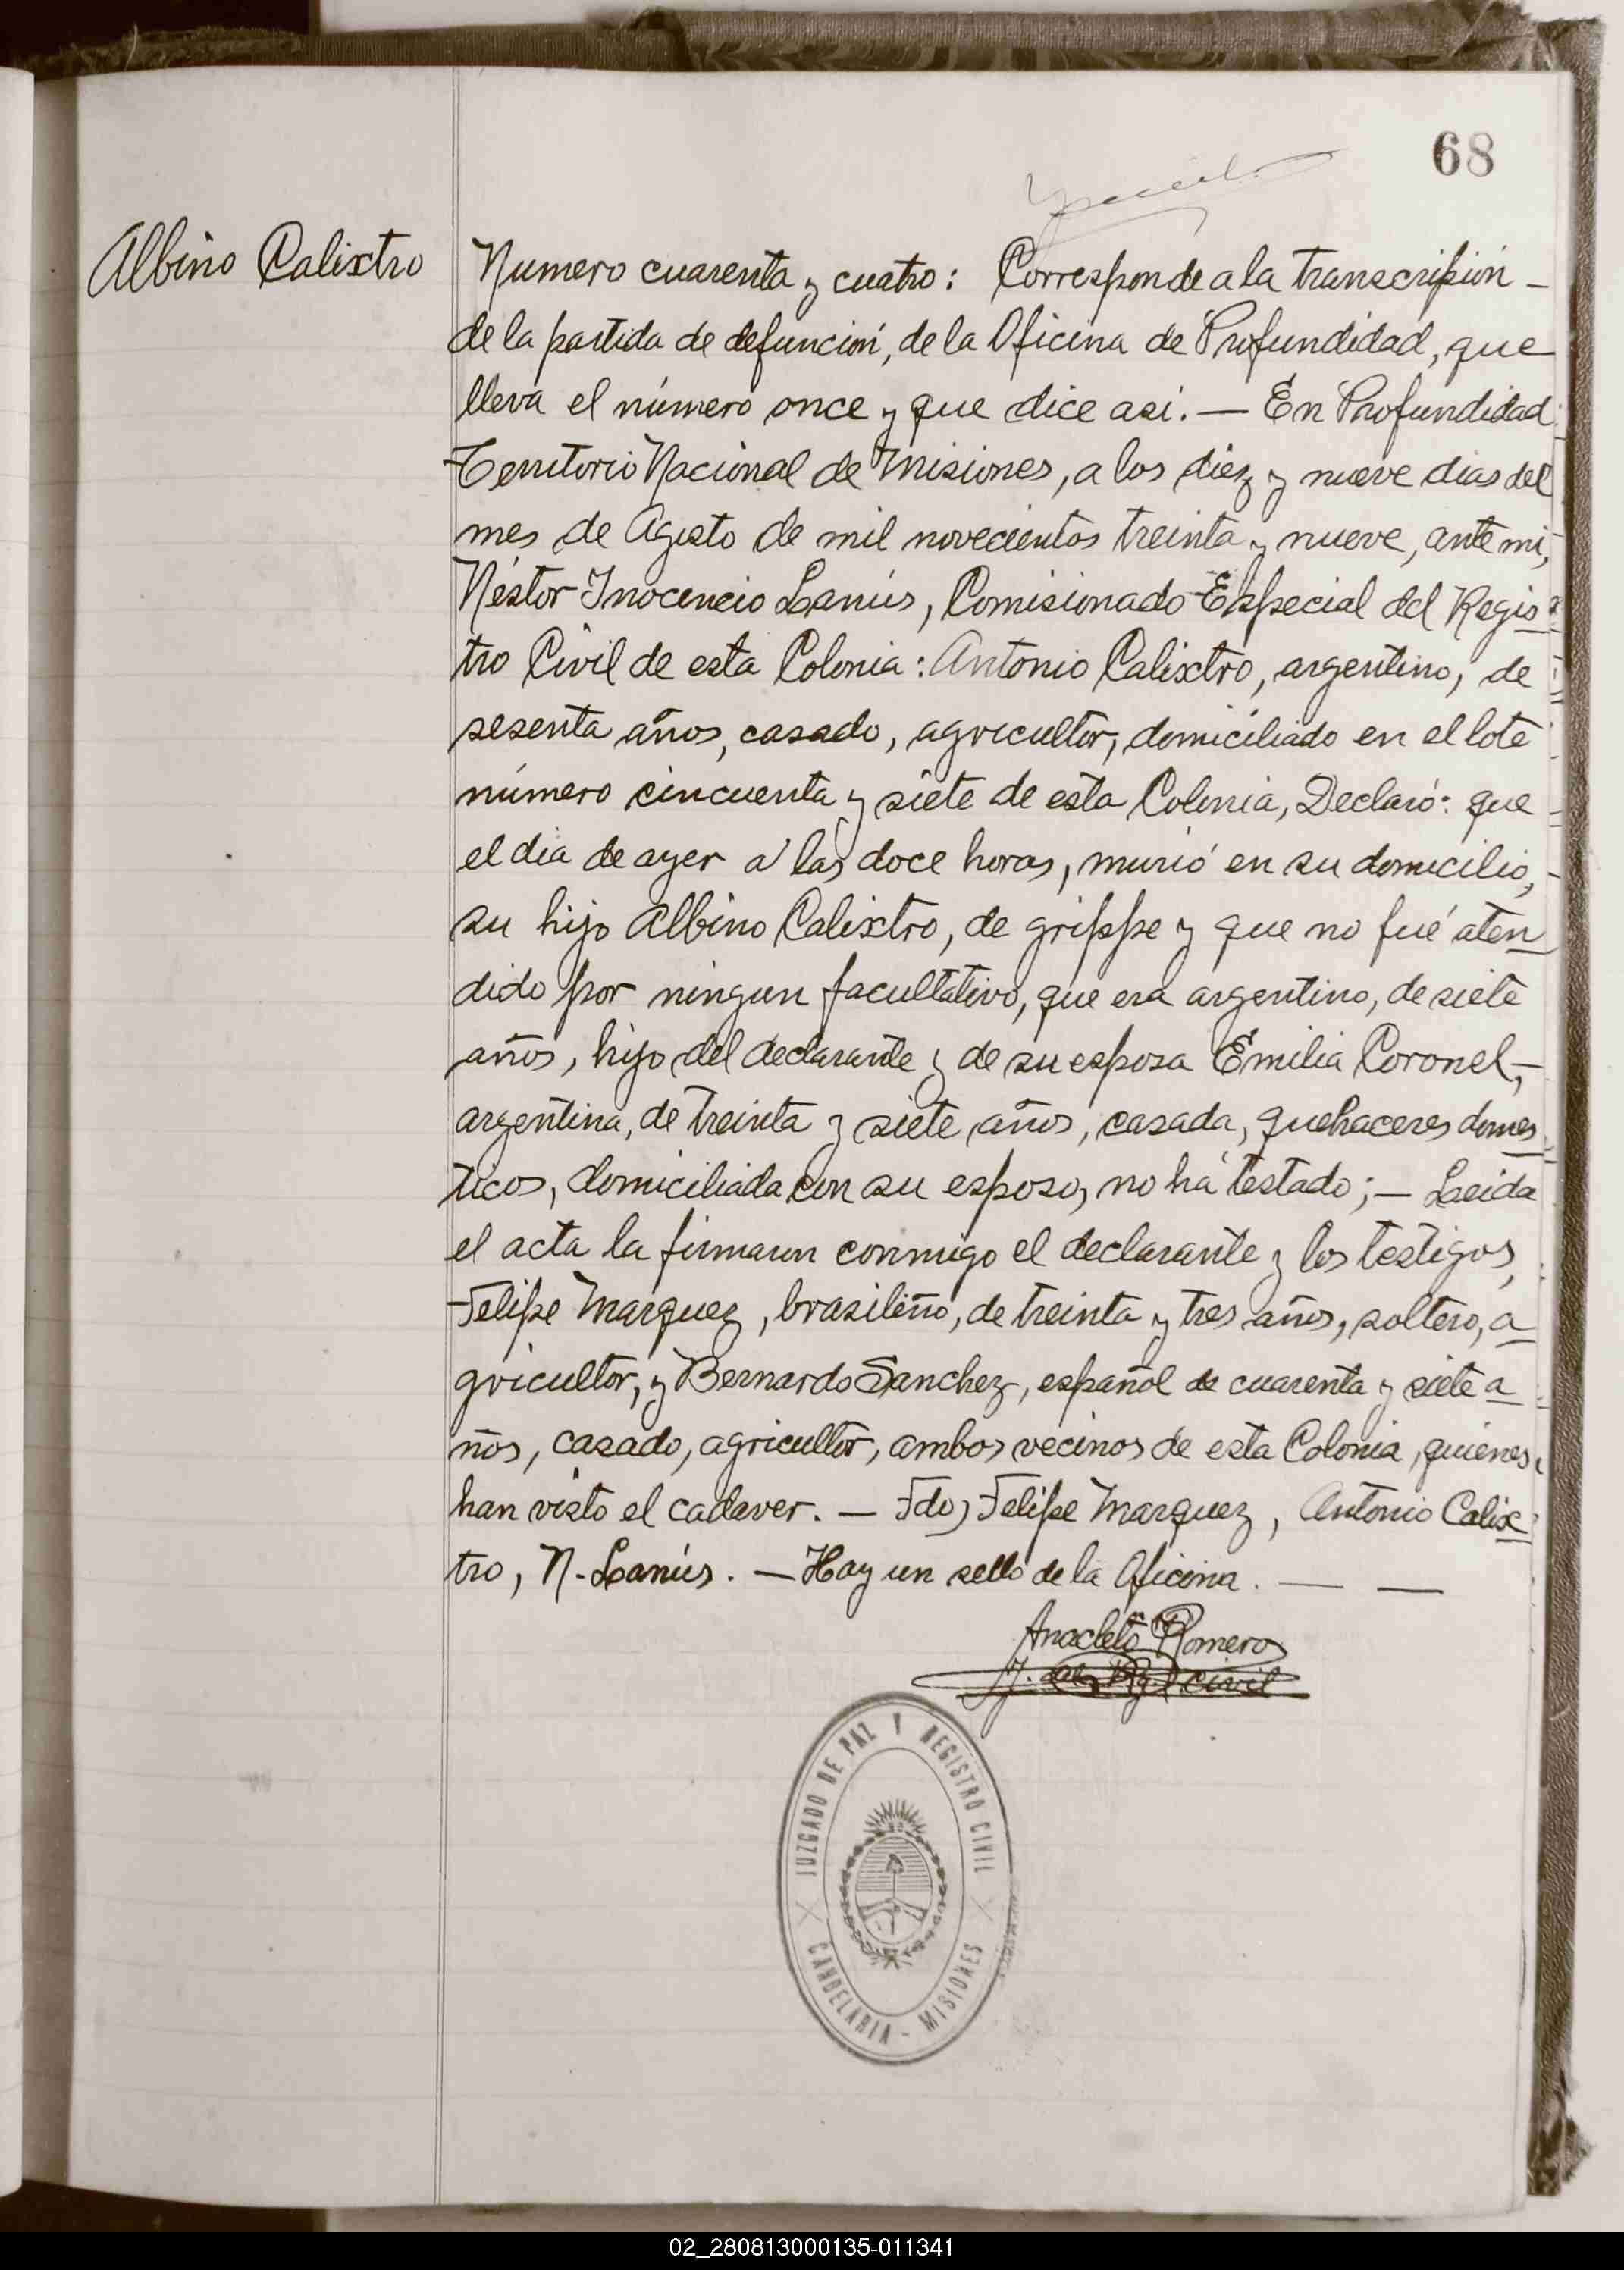 68
Albino Calixtro
Numero cuarenta y cuatro: Corresponde a la transcripión -
de la partida de defunción, de la Oficina de Profundidad, que
lleva el número once y que dice asi. — En Profundidad
Territorio Nacional de Misiones, a los diez y nueve dias del
mes de Agosto de mil novecientos treinta y nueve, ante mi,
Néstor Inocencio Lanús, Comisionado Especial del Regis
tro Civil de esta Colonia: Antonio Calixtro, argentino, de
sesenta años, casado, agricultor, domiciliado en el lote
número cincuenta y siete de esta Colonia, Declaró: que
el dia de ayer a las doce horas, murió en su domicilio,
su hijo Albino Calixtro, de grippe y que no fué aten
dido por ningun facultativo, que era argentino, de siete
años, hijo del declarante y de su esposa Emilia Coronel,
argentina, de treinta y siete años, casada, quehaceres domes
ticos, domiciliada con su esposo, no ha testado; — Leida
el acta la firmaron conmigo el declarante y los testigos,
Felipe Marquez, brasileño, de treinta y tres años, soltero, a
gricultor, y Bernardo Sanchez, español de cuarenta y siete a
ños, casado, agricultor, ambos vecinos de esta Colonia, quienes
han visto el cadaver. — Fdo) Felipe Marquez, Antonio Calix
tro, N. Lanús. — Hay un sello de la Oficina. — —
Anacleto Romero
J. del Reg. Civil
JUZGADO DE PAZ Y REGISTRO CIVIL
CANDELARIA - MISIONES
02_280813000135-011341